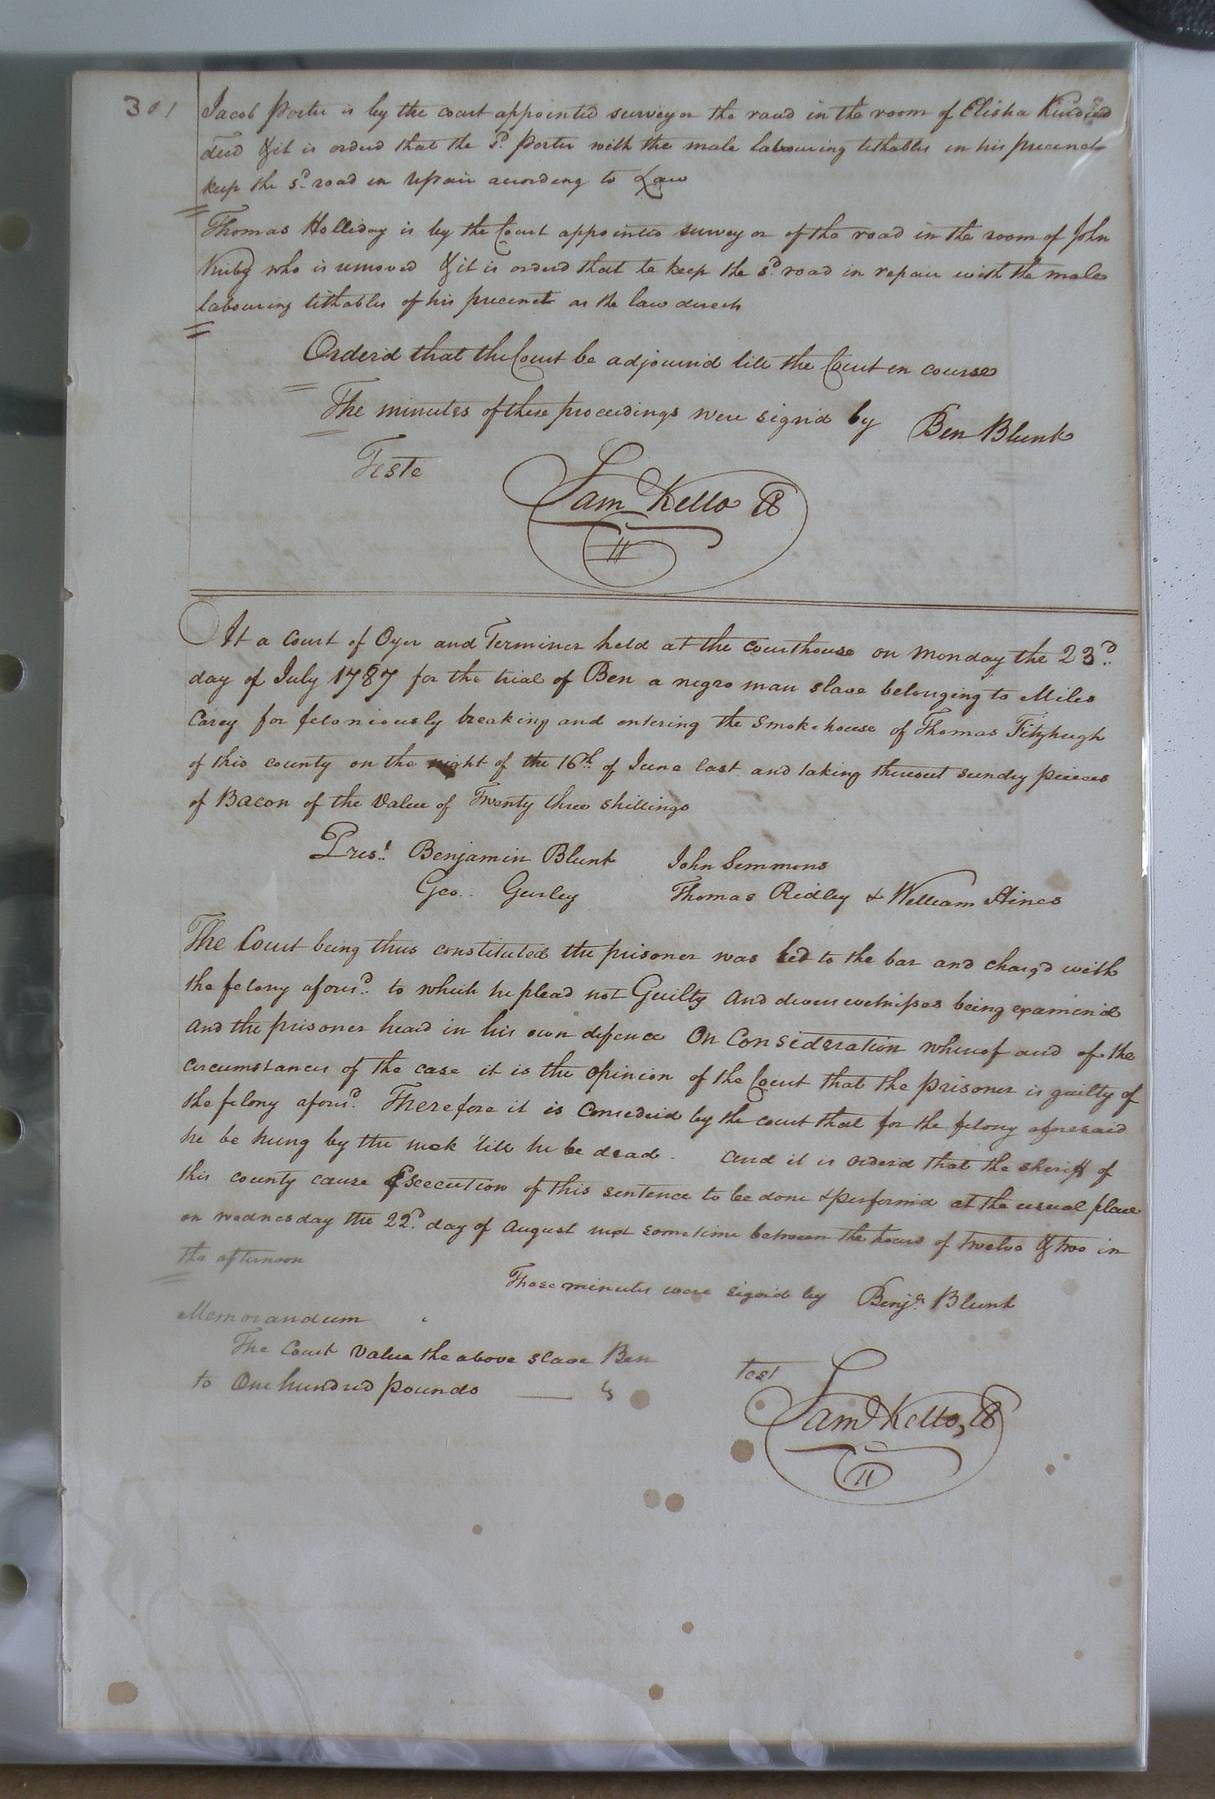 301
Jacob Porter is by the court appointed surveyor the road in the room of Elisha Kindred
decd & it is orderd that the sd. Porter with the male labouring tithables in his precinct
keep the sd. road in repair according to Law
Thomas Holliday is by the Court appointed surveyor of the road in the room of John
Kirby who is removed & it is orderd that he keep the sd. road in repair with the male
labouring tithables of his precinct as the law directs
Orderd that the Court be adjournd till the Court in course
The minutes of these proceedings were signd by Ben Blunt
Teste
Sam Kello CC
At a Court of Oyer and Terminer held at the courthouse on Monday the 23d..
day of July 1787 for the trial of Ben a negro man slave belonging to Miles
Carey for feloniously breaking and entering the Smokehouse of Thomas Fitzhugh
of this county on the night of the 16th. of June last and taking thereout sundry pieces
of Bacon of the Value of Twenty three shillings
Prest. Benjamin Blunt John Simmons
Geo.. Gurley Thomas Ridley & William Hines
The Court being thus constituted the prisoner was led to the bar and chargd with
the felony aforesd.. to which he plead not Guilty and divers witnesses being examined
and the prisoner heard in his own defence On Consideration whereof and of the
circumstances of the case it is the opinion of the Court that the prisoner is guilty of
the felony aforesd. Therefore it is Considerd by the court that for the felony aforesaid
he be hung by the neck 'till he be dead. And it is orderd that the sheriff of
this county cause Execution of this sentence to be done & performd at the usual place
on wednesday the 22d. day of August next sometime between the hours of twelve & two in
the afternoon
These minutes were signd by Benja. Blunt
Memorandum
The Court value the above slave Ben
to One hundred pounds
test
Saml Kello, CC